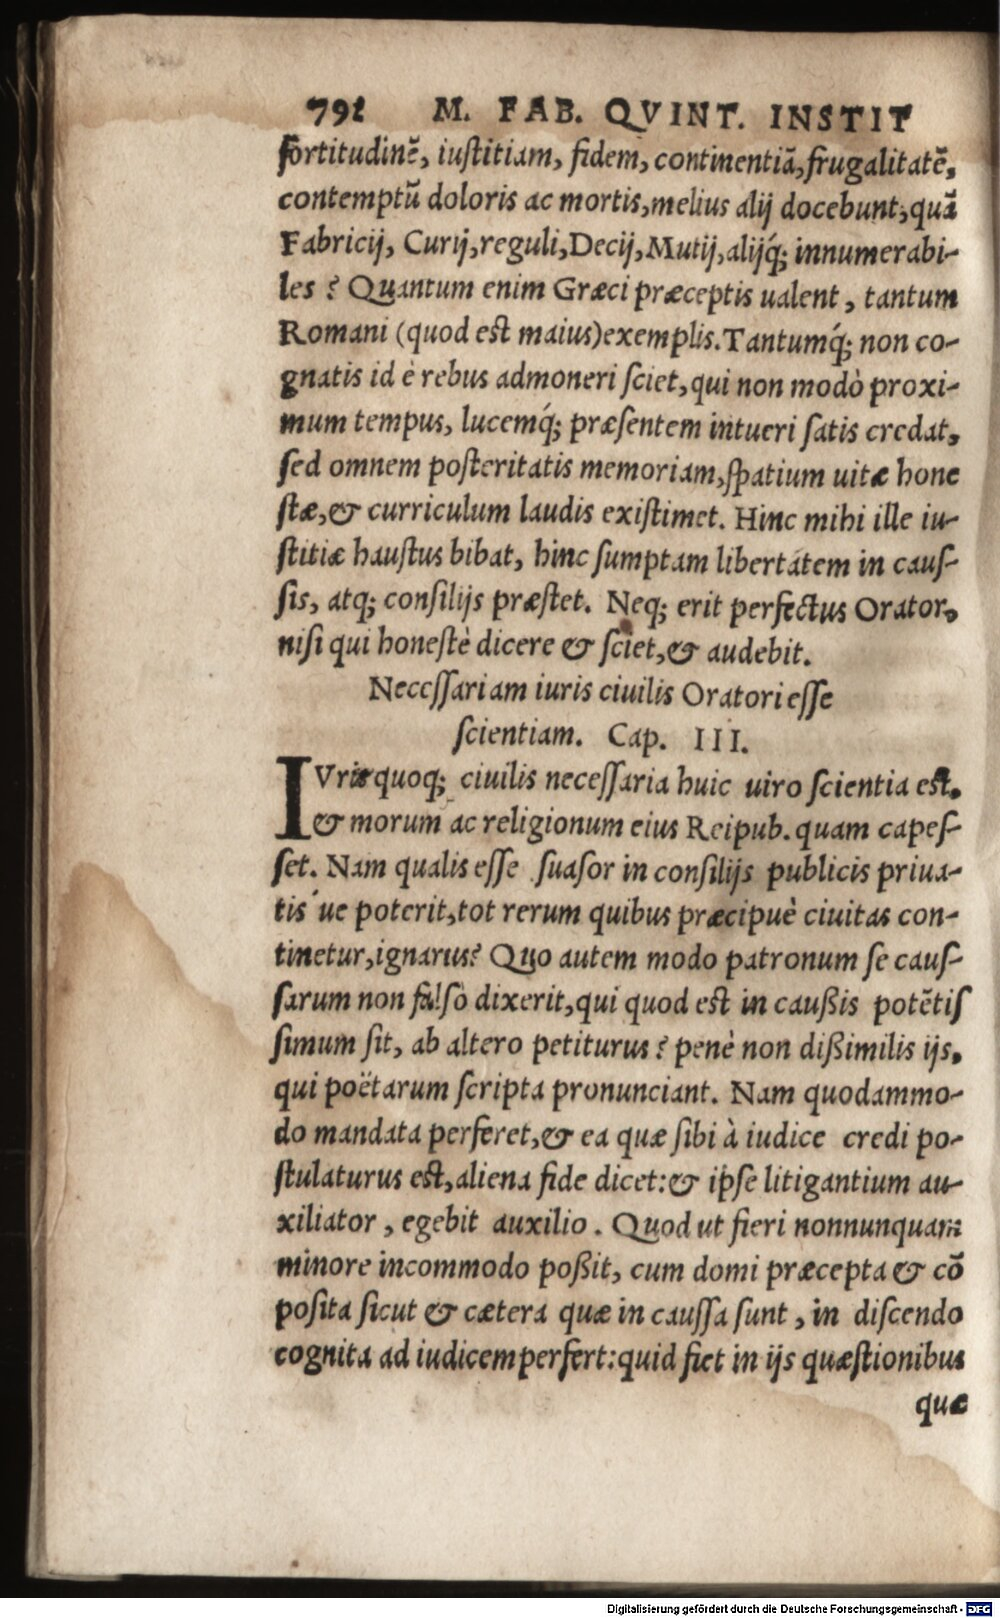 792 M. FAB. QVINT. INSTIT
fortitudinẽ, iuſtitiam, fidem, continentiã, frugalitatẽ,
contemptũ doloris ac mortis, melius alij docebunt, quã
Fabricij, Curij, reguli, Decij, Mutij, alijq́; innumerabi-
les? Quantum enim Græci præceptis ualent, tantum
Romani (quod est maius) exemplis. Tantumq́; non co-
gnatis id è rebus admoneri ſciet, qui non modò proxi-
mum tempus, lucemq́; præſentem intueri ſatis credat,
ſed omnem poſteritatis memoriam, ſpatium uitæ hone
ſtæ, & curriculum laudis exiſtimet. Hinc mihi ille iu-
ſtitiæ hauſtus bibat, hinc ſumptam libertátem in cauſ-
ſis, atq; conſilijs præſtet. Neq; erit perfectus Orator,
niſi qui honeſtè dicere & ſciet, & audebit.
Neceſſariam iuris ciuilis Oratori eſſe
ſcientiam. Cap. III.
IVris quoq; ciuilis neceſſaria huic uiro ſcientia est,
& morum ac religionum eius Reipub. quam capeſ-
ſet. Nam qualis eſſe ſuaſor in conſilijs publicis priua-
tis ́ue poterit, tot rerum quibus præcipuè ciuitas con-
tinetur, ignarus? Quo autem modo patronum ſe cauſ-
ſarum non falſò dixerit, qui quod est in caußis potẽtiſ
ſimum ſit, ab altero petiturus? penè non dißimilis ijs,
qui poëtarum ſcripta pronunciant. Nam quodammo-
do mandata perferet, & ea quæ ſibi à iudice credi po-
ſtulaturus est, aliena fide dicet: & ipſe litigantium au-
xiliator, egebit auxilio. Quod ut fieri nonnunquam
minore incommodo poßit, cum domi præcepta & cõ
poſita ſicut & cætera quæ in cauſſa ſunt, in diſcendo
cognita ad iudicem perfert: quid fiet in ijs quæſtionibus
quæ
Digitalisierung gefördert durch die Deutsche Forschungsgemeinschaft - DFG